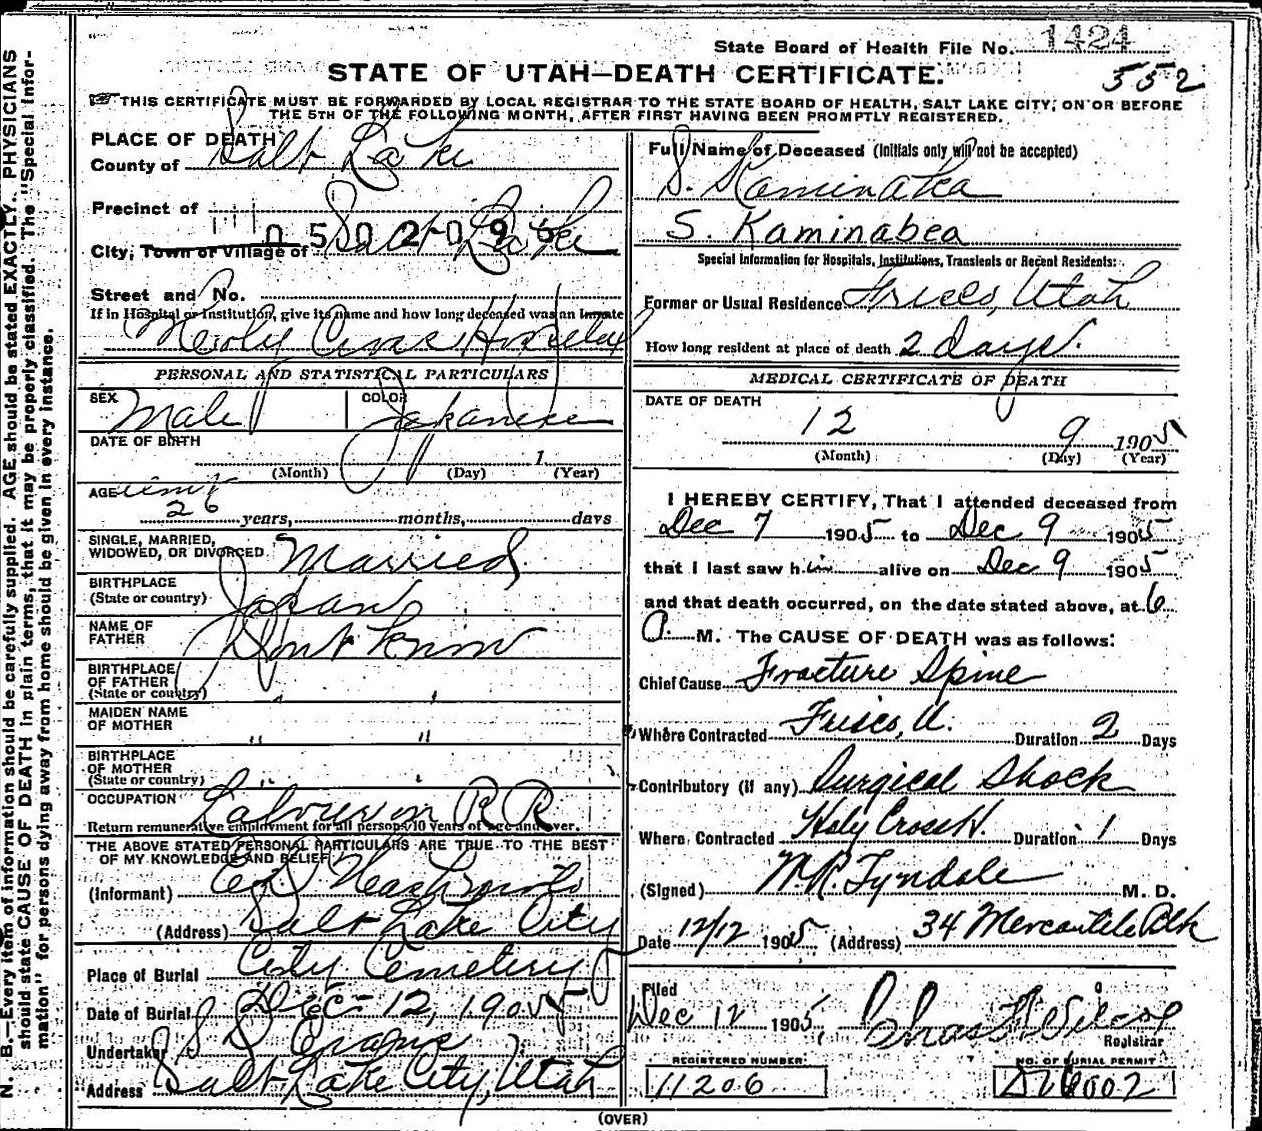 State Board of Health File No. 1424
STATE OF UTAH—DEATH CERTIFICATE.
552
THIS CERTIFICATE MUST BE FORWARDED BY LOCAL REGISTRAR TO THE STATE BOARD OF HEALTH, SALT LAKE CITY, ON OR BEFORE
THE 5TH OF THE FOLLOWING MONTH, AFTER FIRST HAVING BEEN PROMPTLY REGISTERED.
N. B.—Every item of information should be carefully supplied. AGE should be stated EXACTLY. PHYSICIANS
should state CAUSE OF DEATH in plain terms, that it may be properly classified. The "Special Infor-
mation" for persons dying away from home should be given in every instance.
PLACE OF DEATH
County of Salt Lake
Precinct of
0502096
City, Town or Village of Salt Lake
Street and No.
If in Hospital or Institution, give its name and how long deceased was an Inmate
Holy Cross Hospital
PERSONAL AND STATISTICAL PARTICULARS
SEX Male COLOR Japanese
DATE OF BIRTH
1
(Month) (Day) (Year)
AGE
26 years, months, days
SINGLE, MARRIED,
WIDOWED, OR DIVORCED Married
BIRTHPLACE
(State or country) Japan
NAME OF
FATHER Dont know
BIRTHPLACE
OF FATHER
(State or country) " "
MAIDEN NAME
OF MOTHER " "
BIRTHPLACE
OF MOTHER
(State or country) " "
OCCUPATION Laborer on R R
Return remunerative employment for all persons 10 years of age and over.
THE ABOVE STATED PERSONAL PARTICULARS ARE TRUE TO THE BEST
OF MY KNOWLEDGE AND BELIEF
(Informant)
(Address) Salt Lake City
Place of Burial City Cemetery
Date of Burial Dec- 12, 1905
Undertaker S D Evans
Address Salt Lake City, Utah
Full Name of Deceased (Initials only will not be accepted)
S. Kaminaka
S. Kaminabea
Special Information for Hospitals, Institutions, Transients or Recent Residents:
Former or Usual Residence Frisco, Utah
How long resident at place of death 2 days.
MEDICAL CERTIFICATE OF DEATH
DATE OF DEATH
12 9 1905
(Month) (Day) (Year)
I HEREBY CERTIFY, That I attended deceased from
Dec 7 1905 to Dec 9 1905
that I last saw him alive on Dec 9 1905
and that death occurred, on the date stated above, at 6
P. M. The CAUSE OF DEATH was as follows:
Chief Cause Fracture Spine
Where Contracted Frisco, U. Duration 2 Days
Contributory (if any) Surgical Shock
Where Contracted Holy Cross H. Duration 1 Days
(Signed) W.R. Tyndale M. D.
Date 12/12 1905 (Address) 34 Mercantile Blk
Filed
Dec 12 1905, Chas F Wilcox
Registrar
REGISTERED NUMBER
11206
NO. OF BURIAL PERMIT
(OVER)